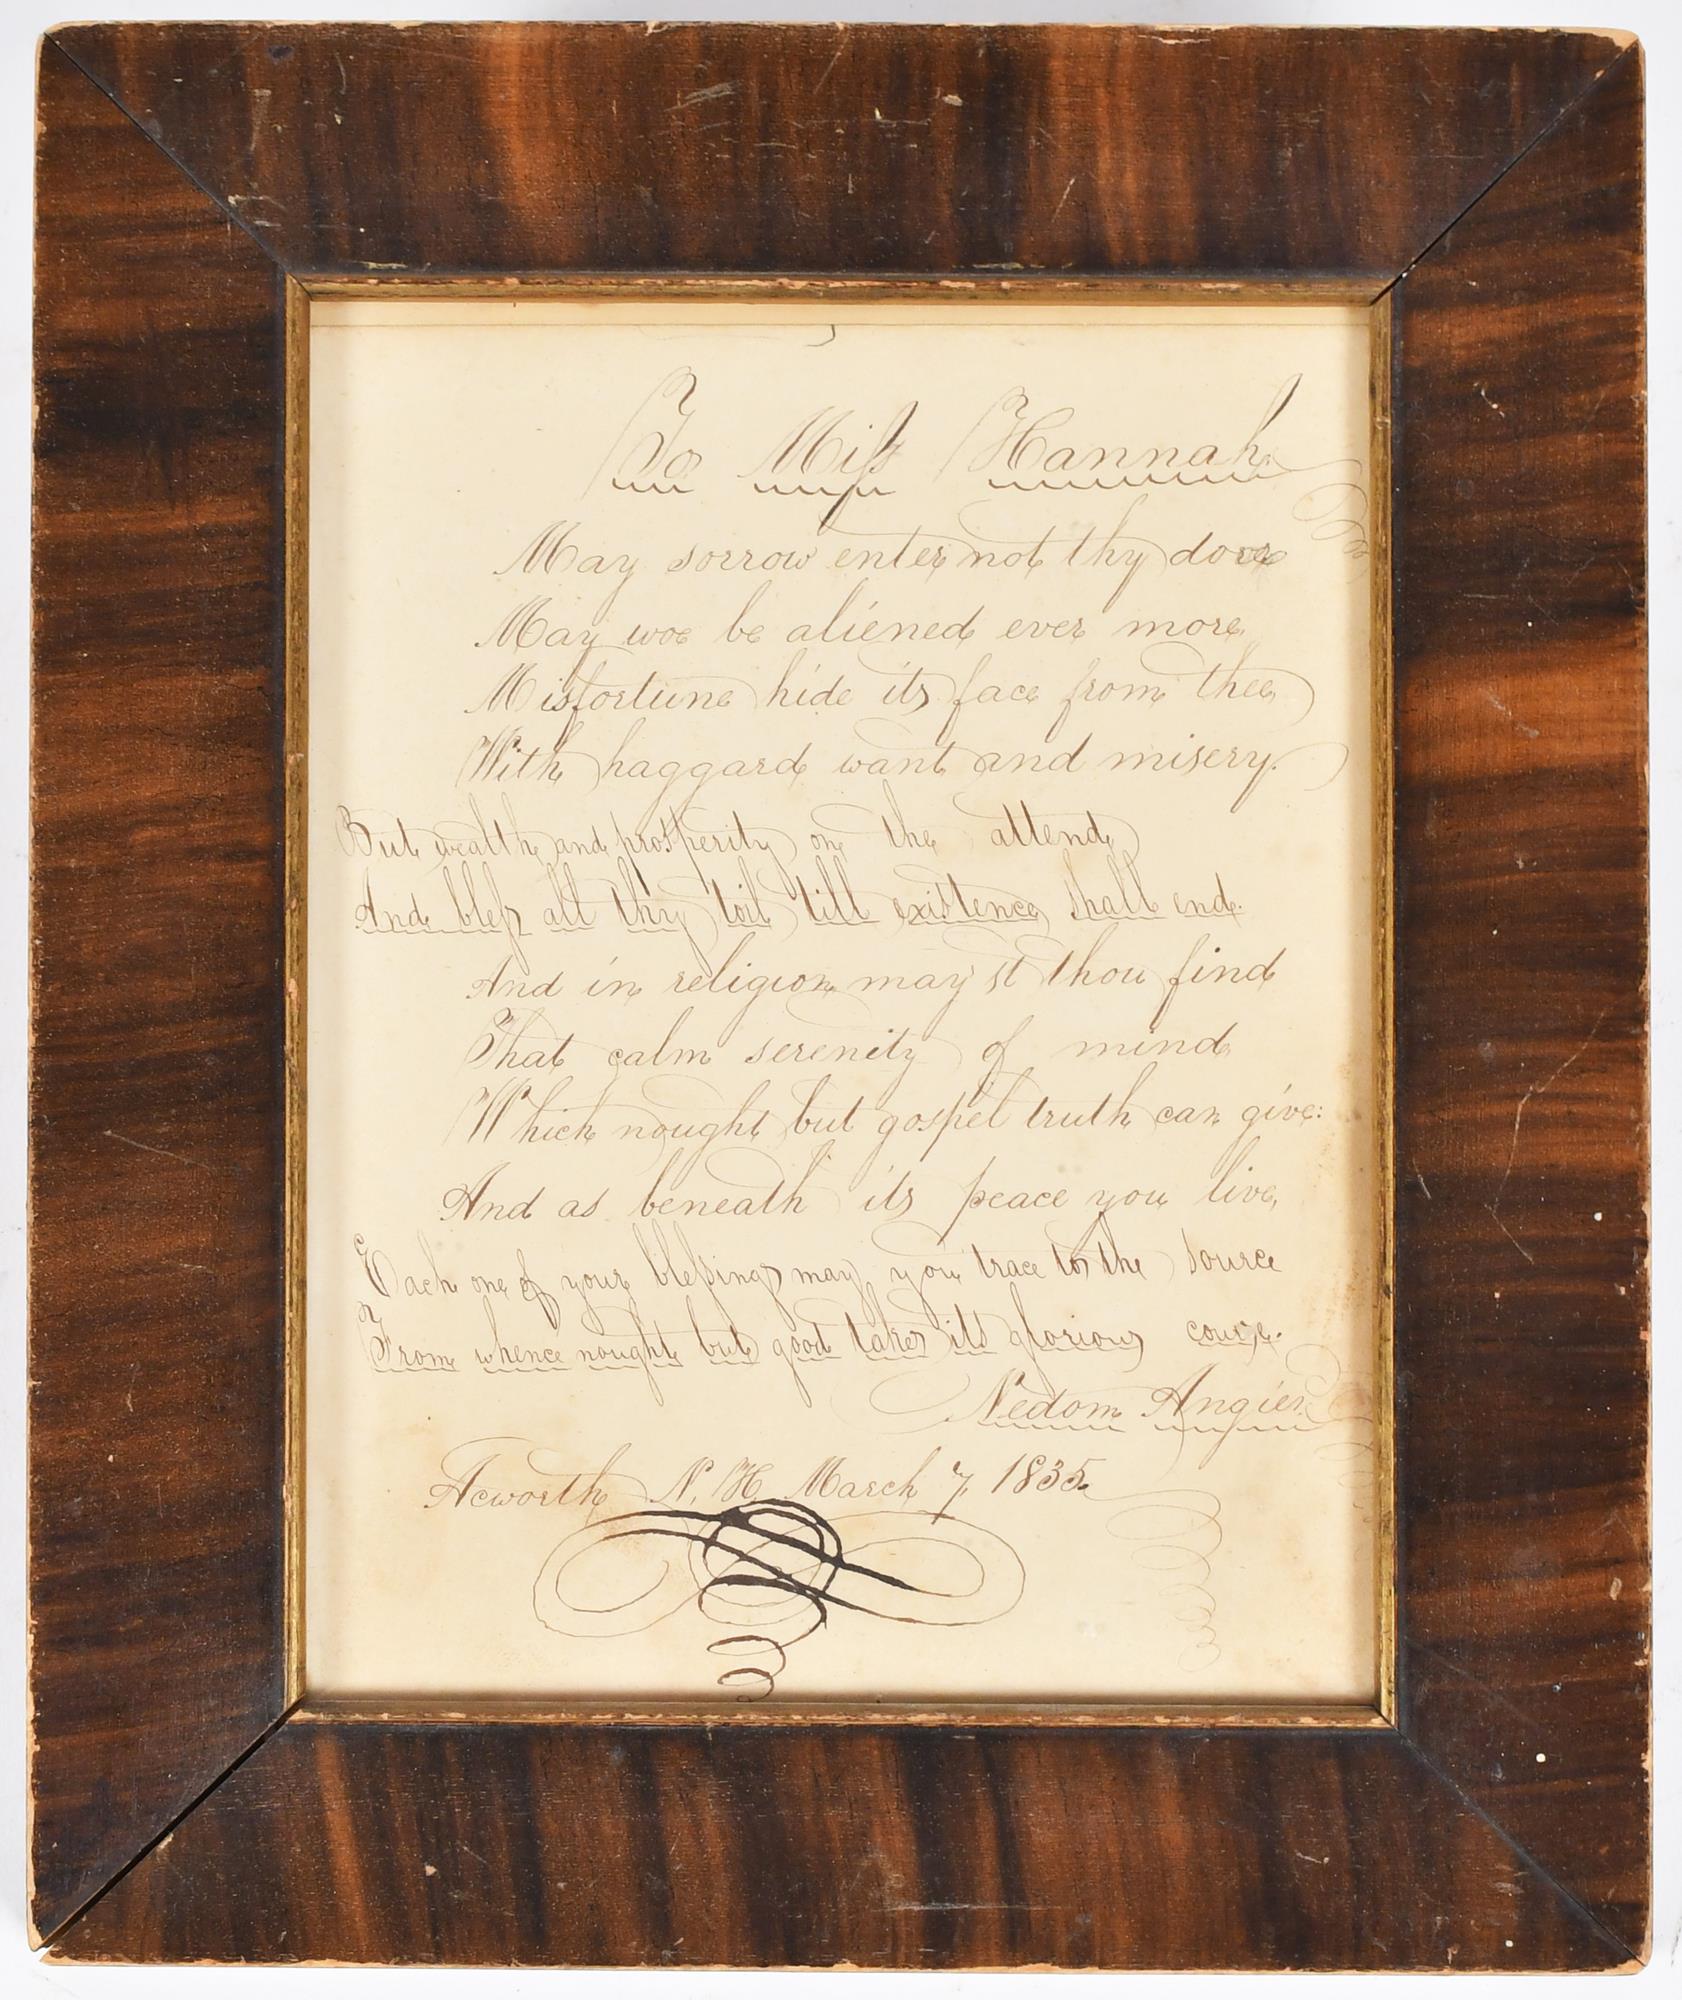 To Miſs Hannah.
May sorrow enter not thy door
May woe be aliened ever more,
Misfortune hide its face from thee,
With haggard want and misery.
But wealth and prosperity on the attend,
And bleſs all thy toil till existence shall end.
And in religion may'st thou find
That calm serenity of mind,
Which nought but gospel truth can give:
And as beneath its peace you live,
Each one of your bleſsings may you trace to the source
From whence nought but good takes its glorious course.
Nedom Angier.
Acworth N. H. March 7, 1835.